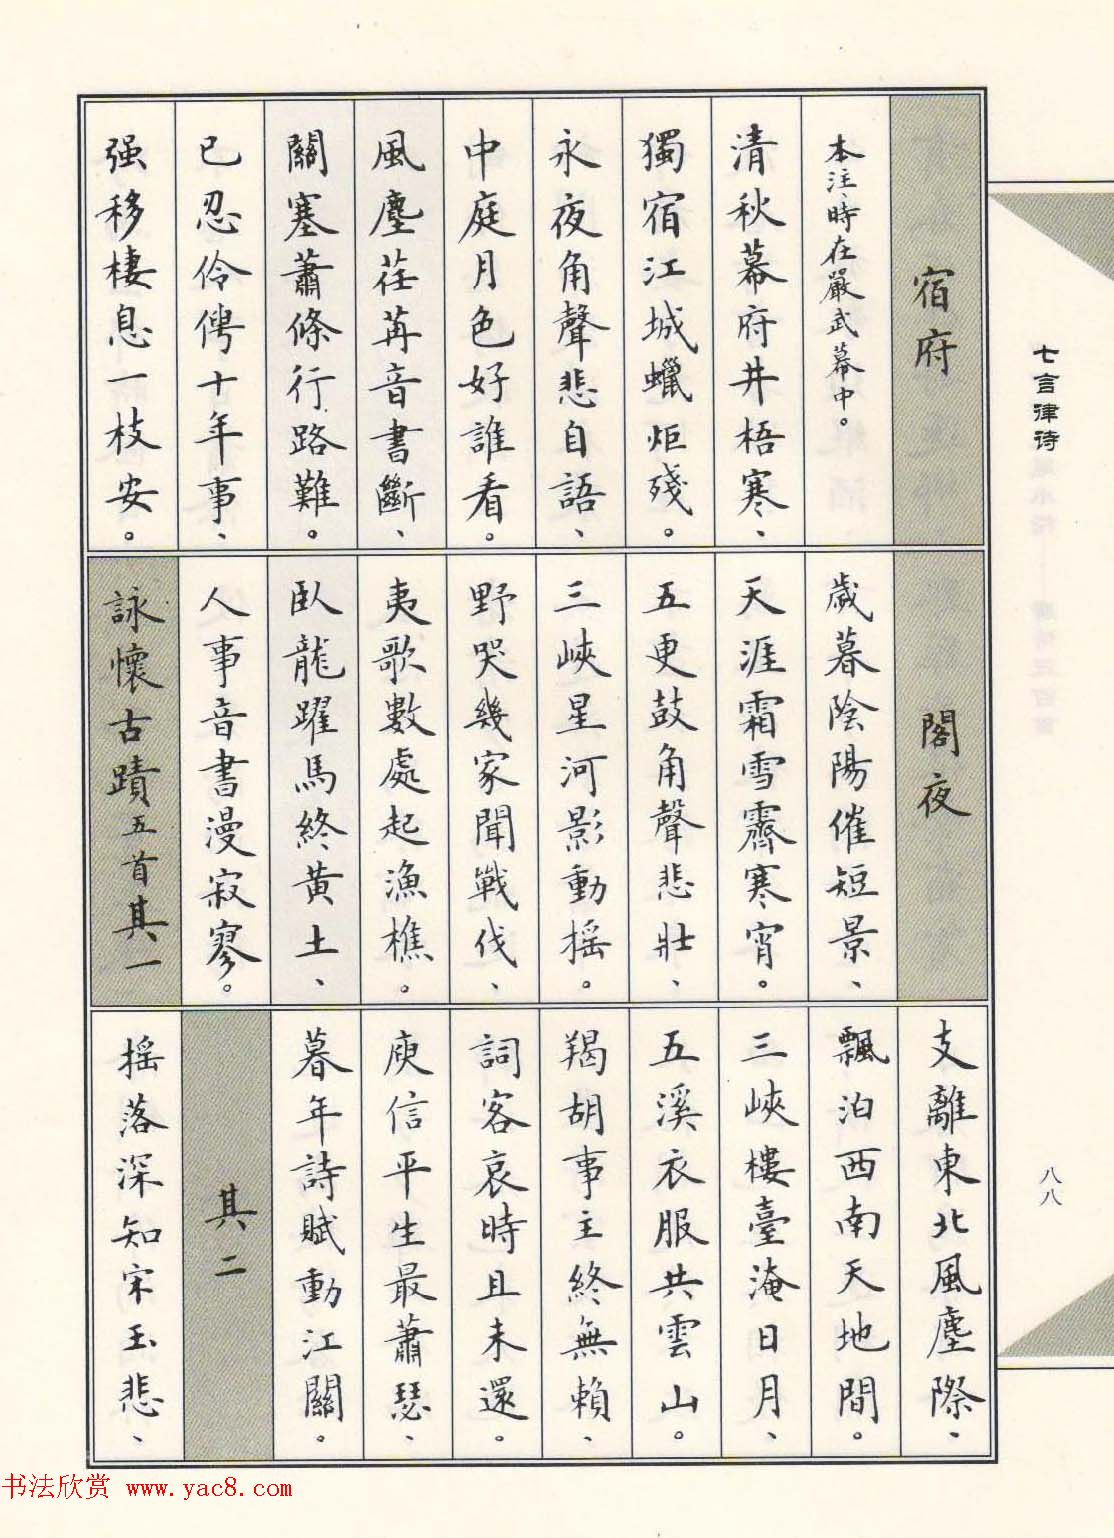 七言律诗
八八
宿府
本注時在嚴武幕中。
清秋幕府井梧寒、
獨宿江城蠟炬殘。
永夜角聲悲自語、
中庭月色好誰看。
風塵荏苒音書斷、
關塞蕭條行路難。
已忍伶俜十年事、
强移棲息一枝安。
閣夜
歲暮陰陽催短景、
天涯霜雪霽寒宵。
五更鼓角聲悲壯、
三峽星河影動摇。
野哭幾家聞戰伐、
夷歌數處起漁樵。
臥龍躍馬終黄土、
人事音書漫寂寥。
詠懷古蹟五首其一
支離東北風塵際、
飄泊西南天地間。
三峽樓臺淹日月、
五溪衣服共雲山。
羯胡事主終無賴、
詞客哀時且未還。
庾信平生最蕭瑟、
暮年詩賦動江關。
其二
摇落深知宋玉悲、
书法欣赏 www.yac8.com